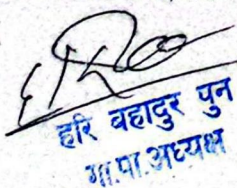 हरि बहादुर पुन
गा.पा.अध्यक्ष